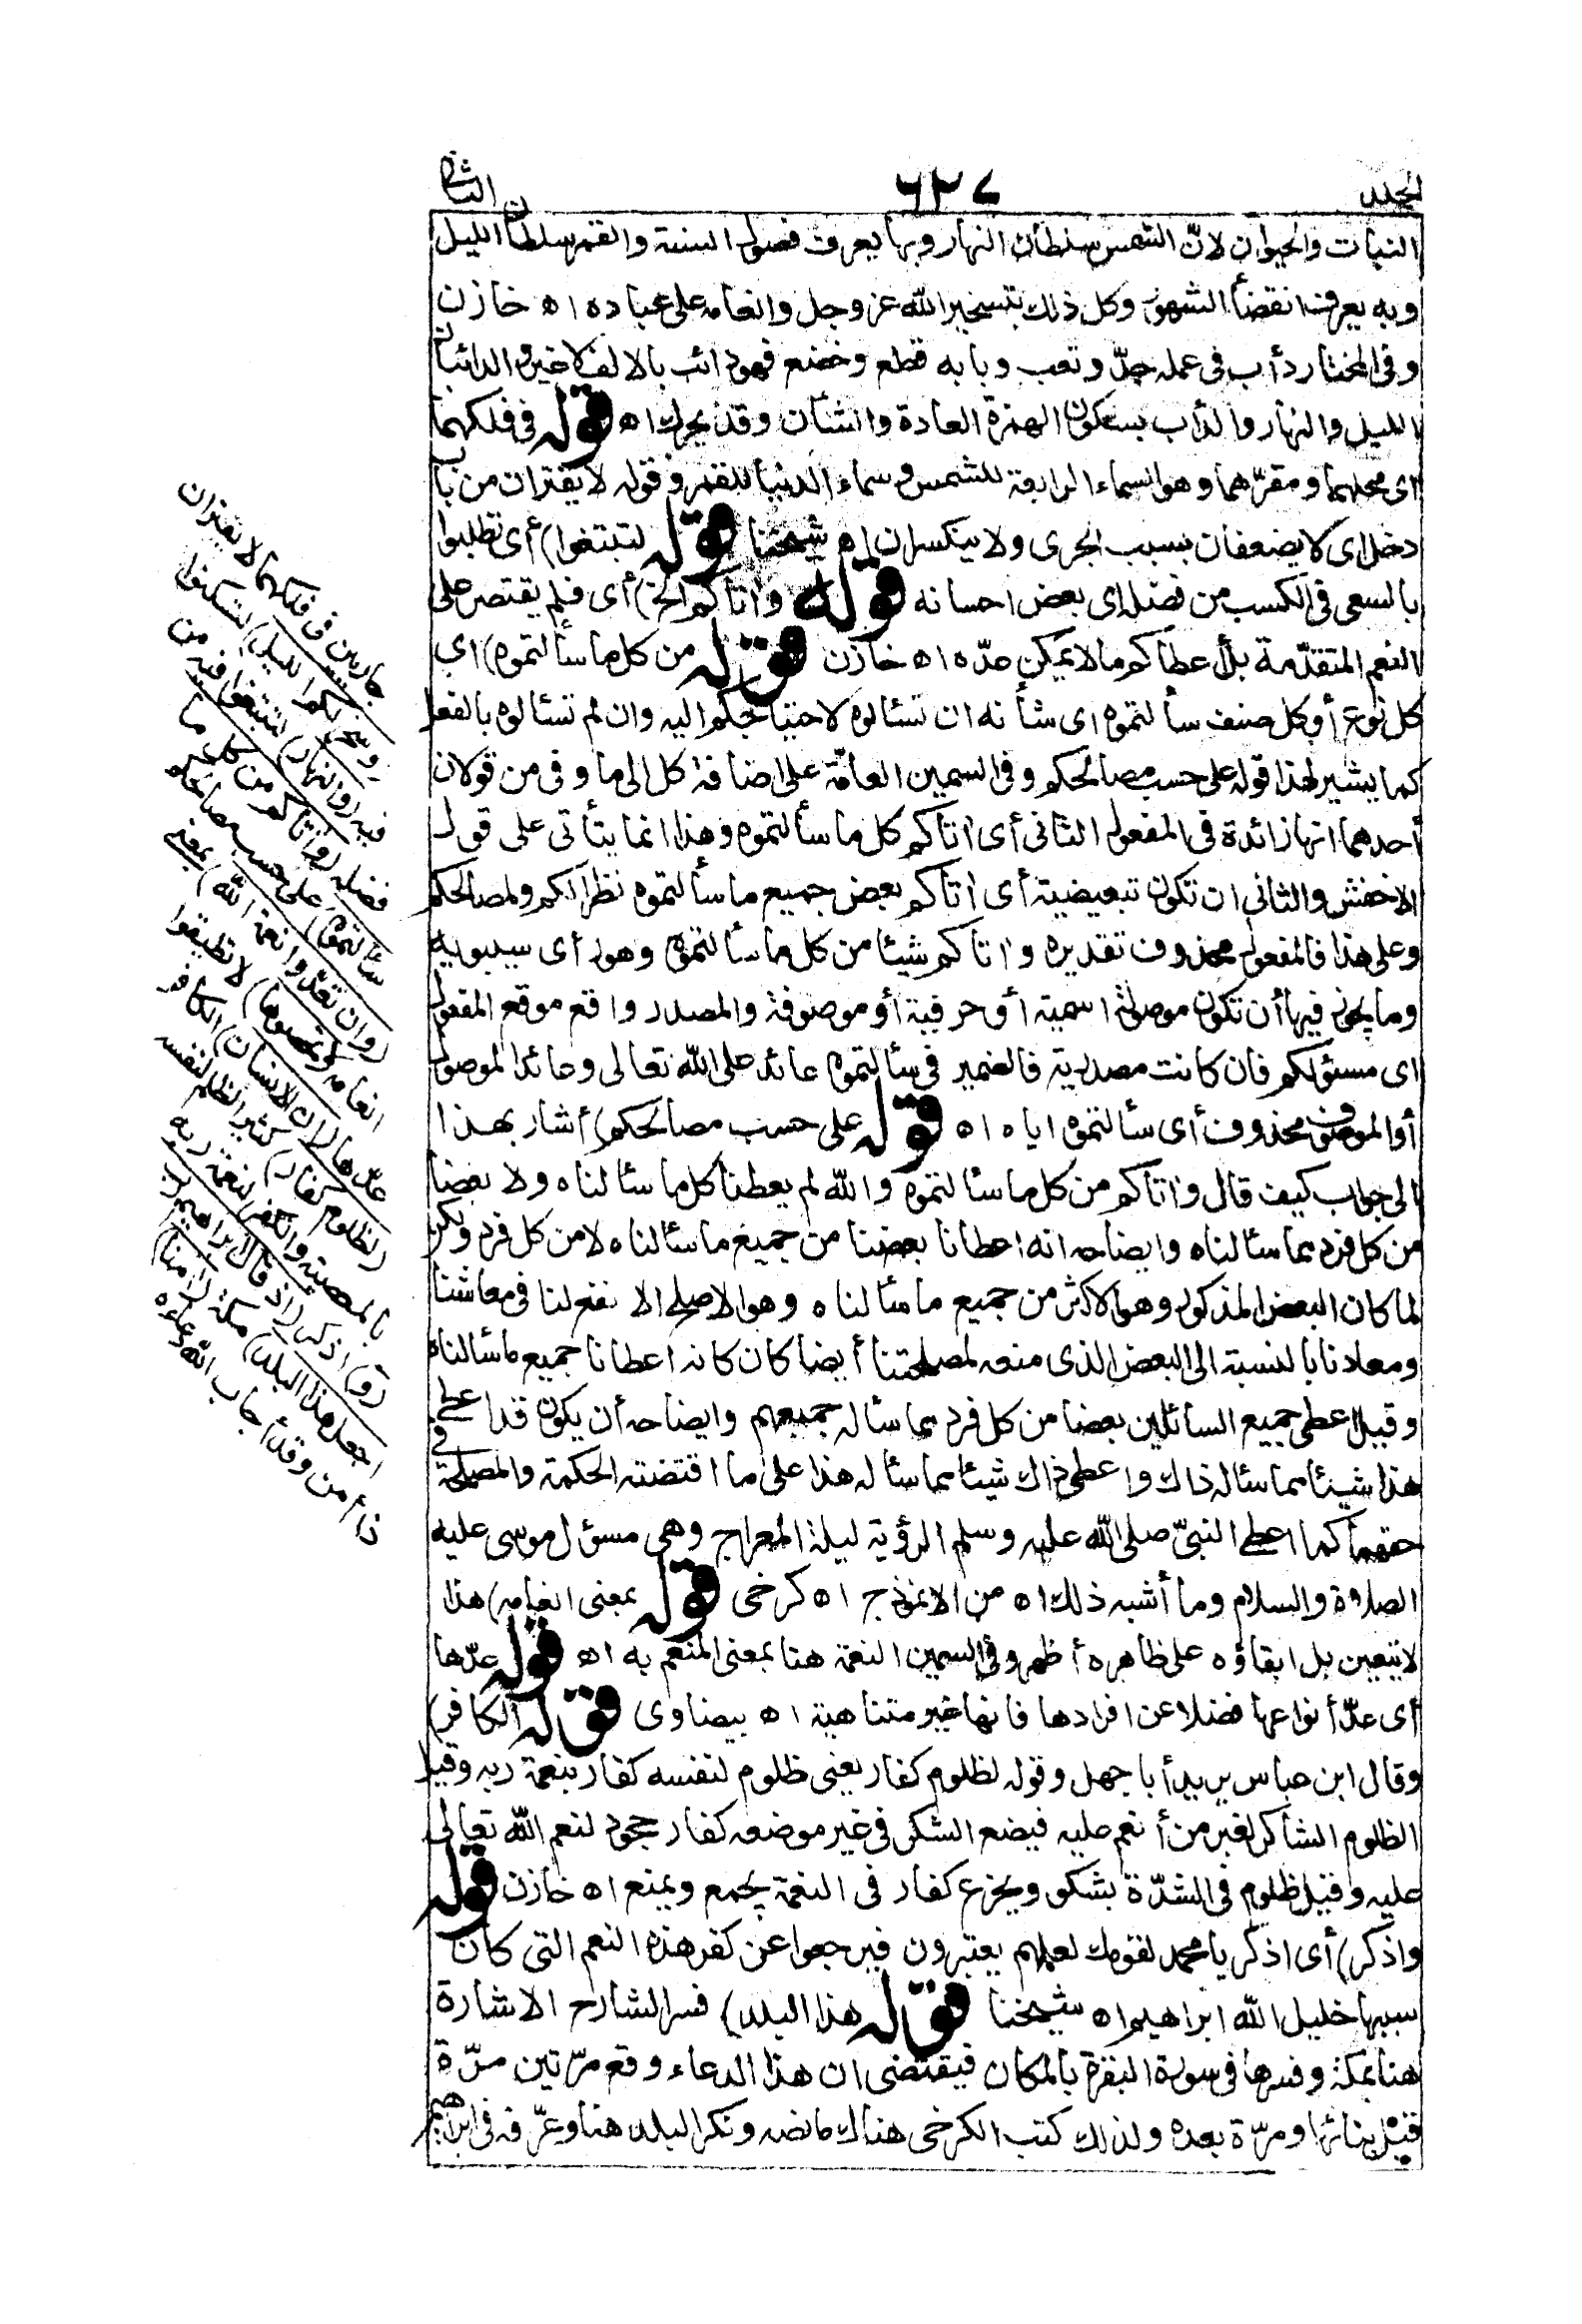 المجلد
٦٢٧
الثانى
النبات والحيوان لانّ الشمس سلطان النهار وبها يعرف فصول السنة والقمر سلطان الليل
وبه يعرف انقضاء الشهور وكل ذلك بتسخير الله عز وجل وانعامه على عباده اه خازن
وفى المختار دأب فى عمله جدّ وتعب وبابه قطع وخضع فهو دائب بالالف لا غير والدائبان
الليل والنهار والدأب بسكون الهمزة العادة والشأن وقد يحرك اه قوله فى فلكهما
اى محلهما ومقرّهما وهو السماء الرابعة للشمس وسماء الدنيا للقمر وقوله لا يفتران من باب
دخل اى لا يضعفان بسبب الجرى ولا ينكسران اه شيخنا قوله لتبتغوا) أى تطلبوا
بالسعى فى الكسب من فضله اى بعض احسانه قوله واٰتاكم الخ) أى فلم يقتصر على
النعم المتقدّمة بل أعطاكم ما لا يمكن عدّه اه خازن قوله من كل ما سألتموه) اى
كل نوع أو كل صنف سألتموه اى شأنه ان تسئالوه لاحتياجكم اليه وان لم تسئالوه بالفعل
كما يشير لهذا قوله على حسب مصالحكم وفى السمين العامّة على اضافة كل الى ما وفى من قولان
أحدهما انها زائدة فى المفعول الثانى أى اٰتاكم كل ما سألتموه وهذا انما يتأتى على قول
الاخفش والثانى ان تكون تبعيضية أى اٰتاكم بعض جميع ما سألتموه نظرا لكم ولمصالحكم
وعلى هذا فالمفعول محذوف تقديره واٰتاكم شيئا من كل ما سألتموه وهو رأى سيبويه
وما يجوز فيها أن تكون موصولة اسمية أو حرفية أو موصوفة والمصدر واقع موقع المفعول
اى مسئولكم فان كانت مصدرية فالضمير فى سألتموه عائد على الله تعالى وعائد الموصول
أو الموصوف محذوف أى سألتموه اياه اه قوله على حسب مصالحكم) أشار بهذا
الى جواب كيف قال واٰتاكم من كل ما سألتموه والله لم يعطنا كل ما سئالناه ولا بعضا
من كل فرد مما سئالناه وايضاحه انه اعطانا بعضنا من جميع ما سئالناه لا من كل فرد ولكن
لما كان البعض المذكور وهو الاكثر من جميع ما سئالناه وهو الاصلح الا نفع لنا فى معاشنا
ومعادنا بالنسبة الى البعض الذى منعه لمصلحتنا أيضا كان كانه اعطانا جميع ماسألناه
وقيل اعطى جميع السائلين بعضا من كل فرد مما سئاله جميعهم وايضاحه أن يكون قد اعطى
هذا شيئا مما سئاله ذاك واعطى ذاك شيئا مما سئاله هذا على ما اقتضته الحكمة والمصلحة فى
حقهما كما اعطى النبىّ صلى الله عليه وسلم الرؤية ليلة المعراج وهى مسؤل موسى عليه
الصلاة والسلام وما أشبه ذلك اه من الانموذج اه كرخى قوله بمعنى انعامه) هذا
لا يتعين بل ابقاؤه على ظاهره أظهر وفى السمين النعمة هنا بمعنى المنعم به اه قوله عدّها
أى عدّ أنواعها فضلا عن افرادها فانها غير متناهية اه بيضاوى قوله الكافر)
وقال ابن عباس يريد أبا جهل وقوله لظلوم كفار يعنى ظلوم لنفسه كفار بنعمة ربه وقيل
الظلوم الشاكر لغير من أنعم عليه فيضع الشكر فى غير موضعه كفار جحود لنعم الله تعالى
عليه وقيل ظلوم فى الشدّة يشكو ويجزع كفار فى النعمة يجمع ويمنع اه خازن قوله
واذكر) أى اذكر يا محمد لقومك لعلهم يعتبرون فيرجعوا عن كفر هذه النعم التى كان
سببها خليل الله ابراهيم اه شيخنا قوله هذا البلد) فسر الشارح الاشارة
هنا بمكة وفسرها فى سورة البقرة بالمكان فيقتضى ان هذا الدعاء وقع مرّتين مرّة
قبل بنائها ومرّة بعده ولذلك كتب الكرخى هناك مانصه ونكر البلد هنا وعرّفه فى ابراهيم
جاريين فى فلكهما لا يفتران
(وسخر لكم الليل) لتسكنوا
فيه (والنهار) لتبتغوا فيه من
فضله (واٰتاكم من كل ما
سألتموه) على حسب مصالحكم
(وان تعدّوا نعمة الله) بمعنى
انعامه (لا تحصوها) لا تطيقوا
عدّها (ان الانسان) الكافر
(لظلوم كفار) كثير الظلم لنفسه
بالمعصية والكفر لنعمة ربه
(و) اذكر (اذ قال ابراهيم رب
اجعل هذا البلد) مكة (اٰمنا)
ذا أمن وقد أجاب الله دعاءه